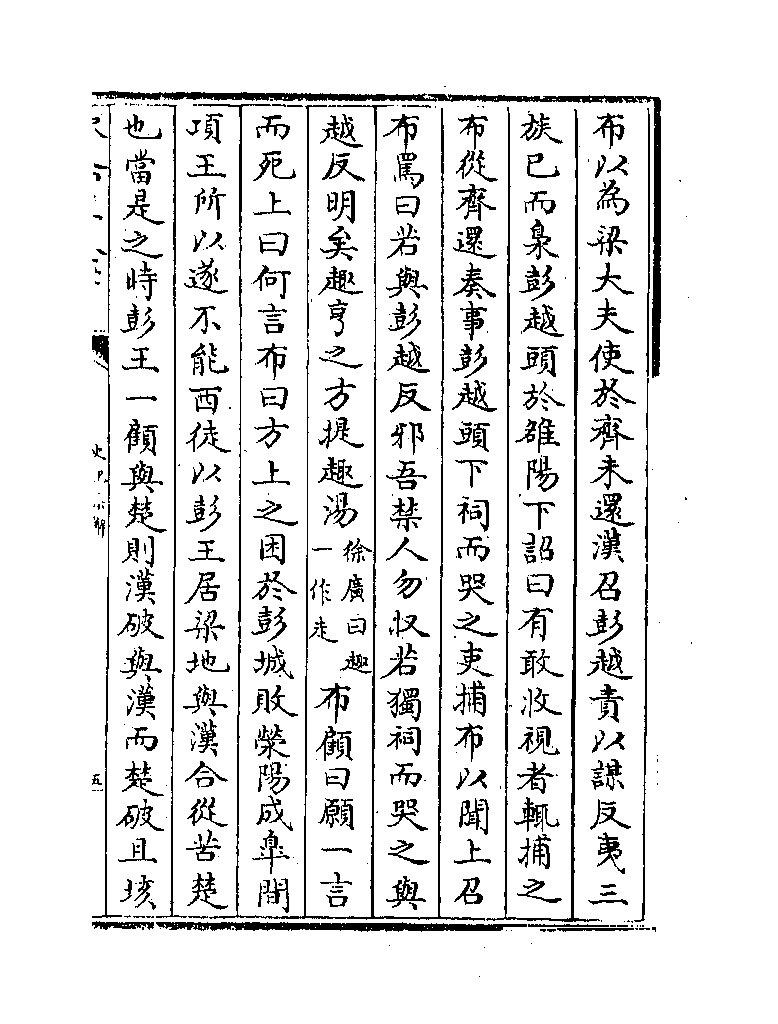 布以為梁大夫使於齊未還漢召彭越責以謀反夷三
族已而梟彭越頭於雒陽下詔曰有敢收視者輒捕之
布從齊還奏事彭越頭下祠而哭之吏捕布以聞上召
布罵曰若與彭越反邪吾禁人勿收若獨祠而哭之與
越反明矣趣亨之方提趣湯徐廣曰趣一作走布顧曰願一言
而死上曰何言布曰方上之困於彭城敗滎陽成臯間
項王所以遂不能西徒以彭王居梁地與漢合從苦楚
也當是之時彭王一顧與楚則漢破與漢而楚破且垓
五